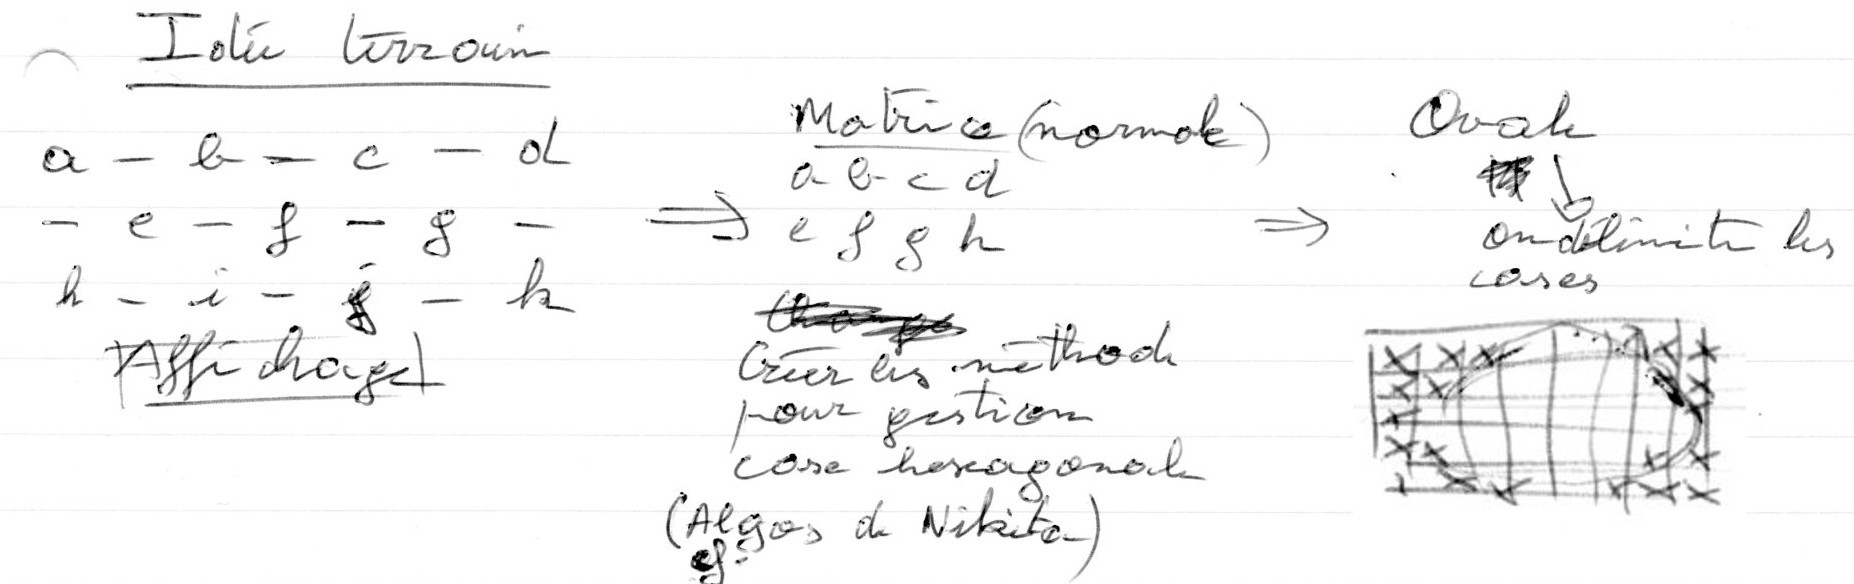 Idée terrain
a - b - c - d
- e - f - g -
h - i - j - k
Affichage
Matrice (normale)
a b c d
e f g h
Créer les méthode
pour gestion
case hexagonale
(Algos de Nikita)
Ovale
on délimite les
cases